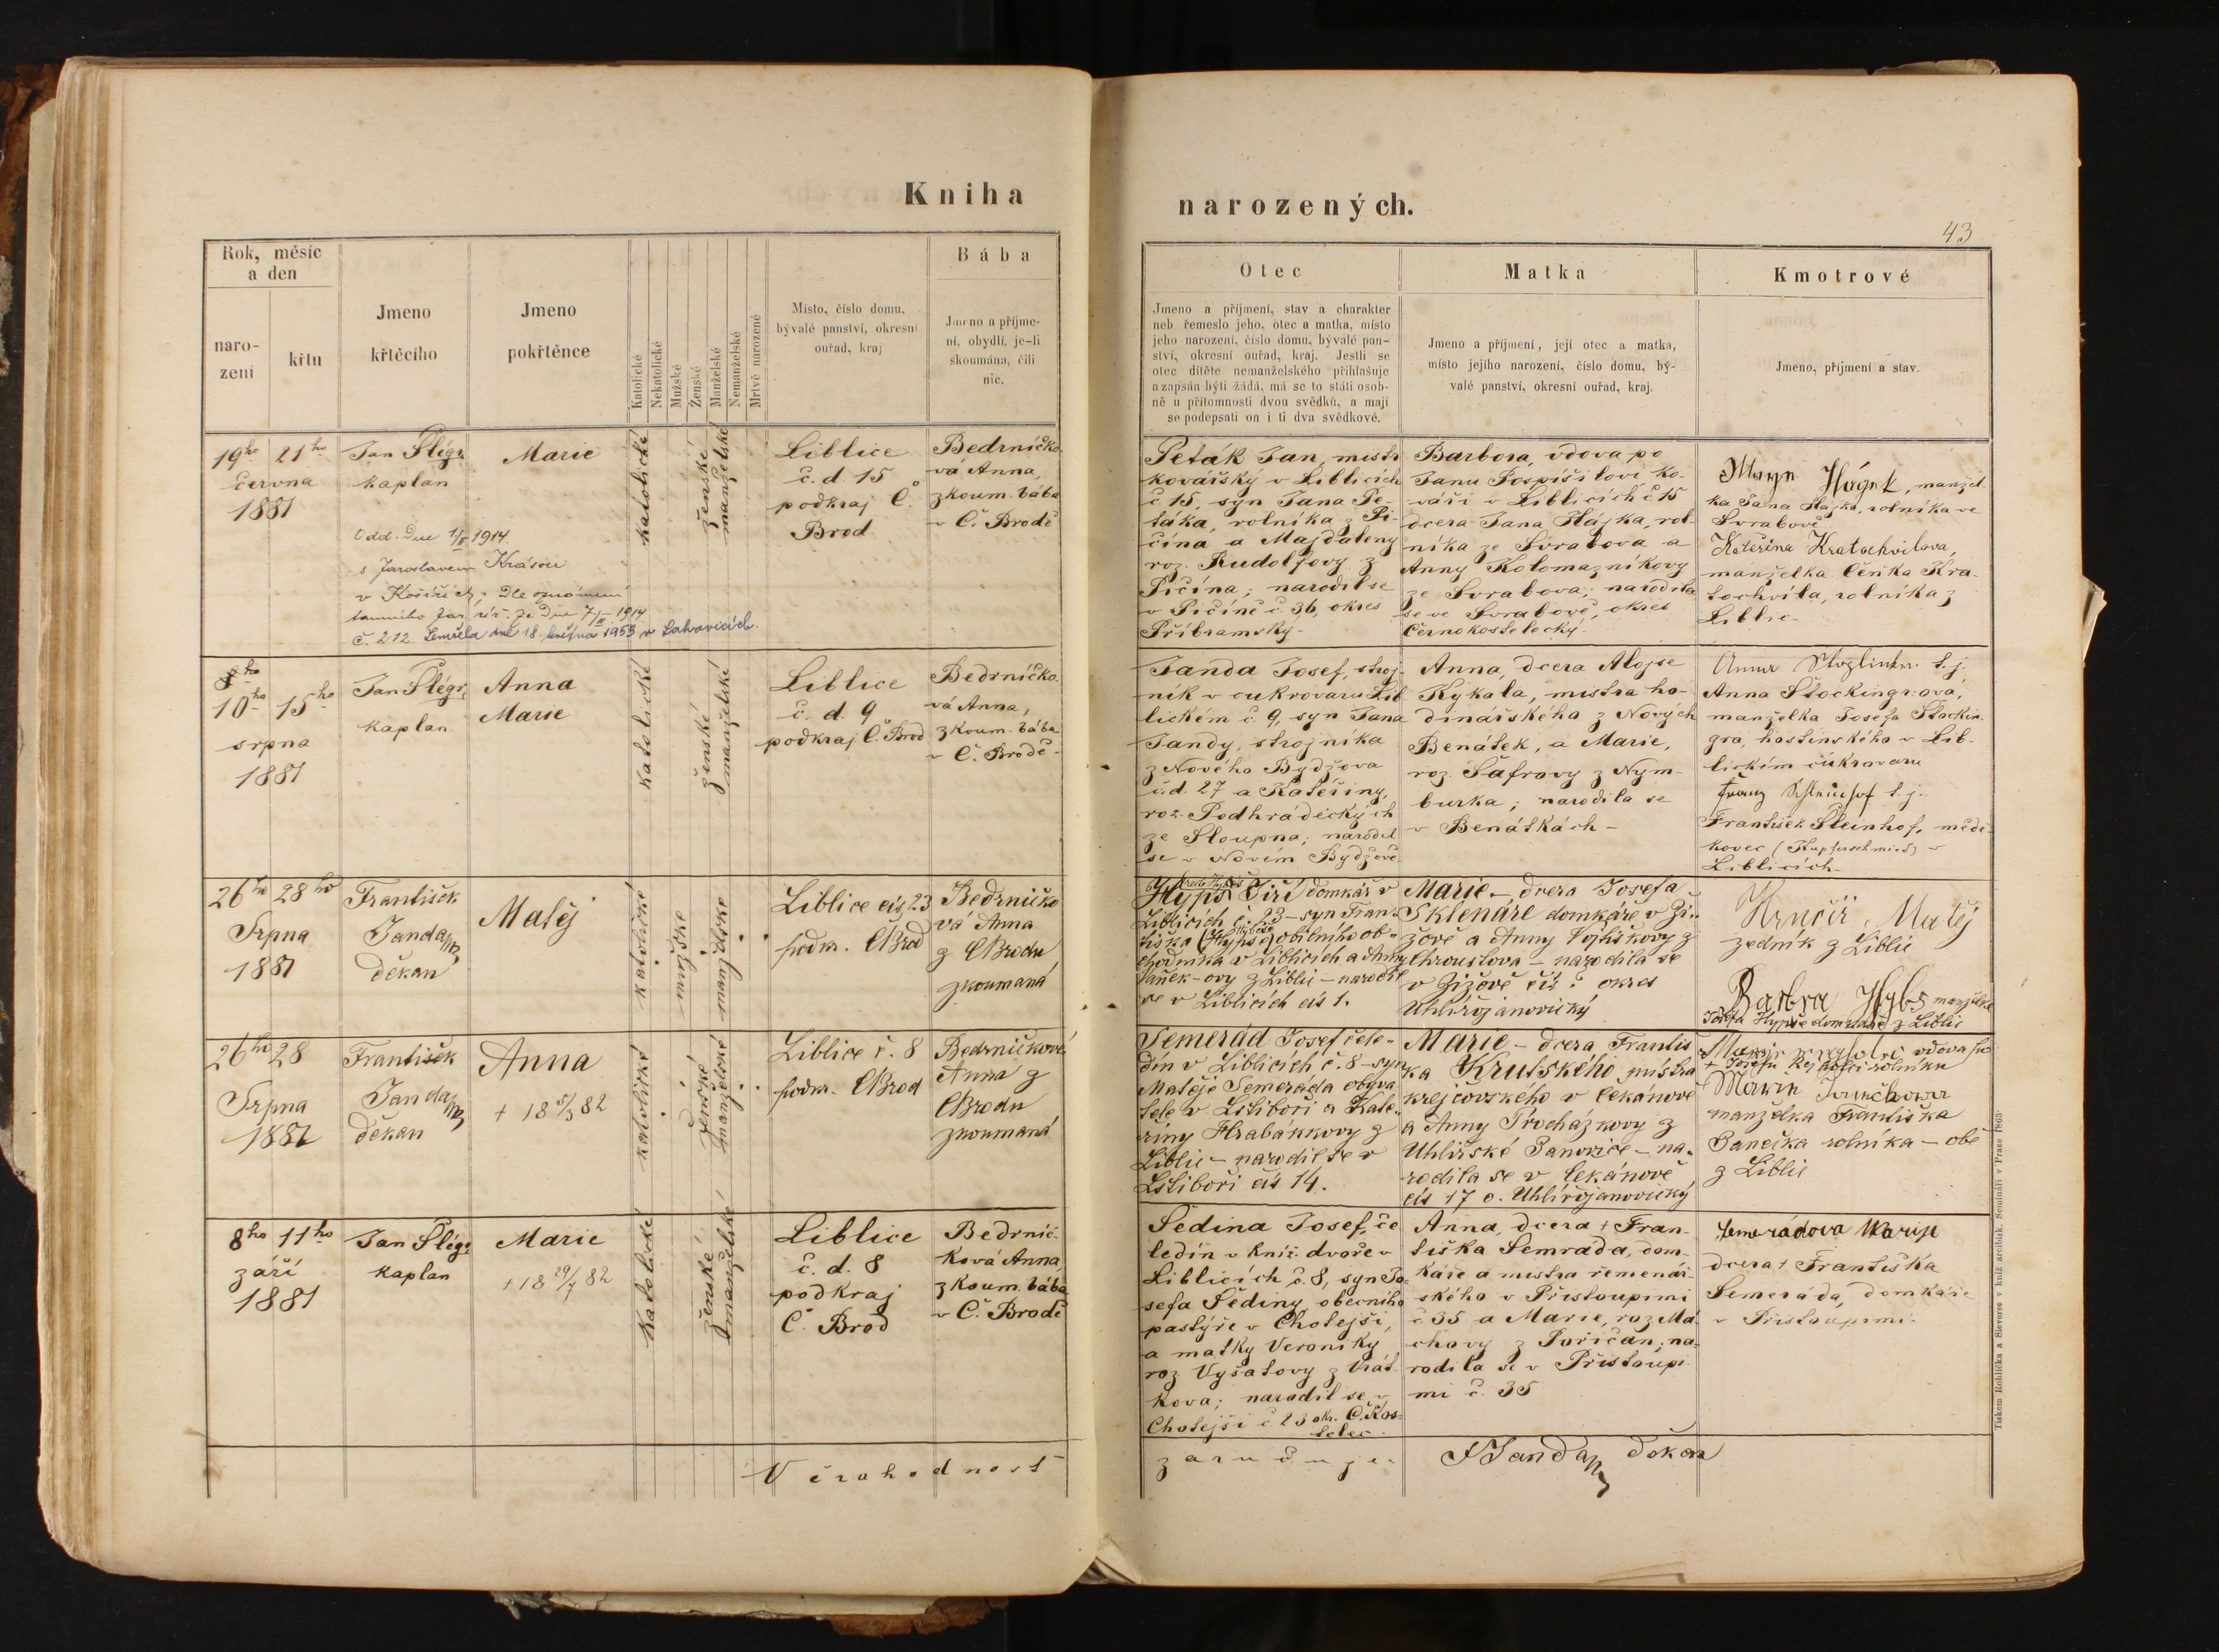 Kniha
narozených.
43
Rok, měsíc
a den
naro-
zení
křtu
Jmeno
křtěcího
Jmeno
pokřtěnce
Katolické
Nekatolické
Mužské
Ženské
Manželské
Nemanželské
Mrtvě narozené
Místo, číslo domu,
bývalé panství, okresní
ouřad, kraj
Bába
Jmeno a příjme-
ní, obydlí, je-li
skoumána, čili
nic.
Otec
Jmeno a příjmení, stav a charakter
neb řemeslo jeho, otec a matka, místo
jeho narození, číslo domu, bývalé pan-
ství, okresní ouřad, kraj. Jestli se
otec dítěte nemanželského přihlašuje
a zapsán býti žádá, má se to státi osob-
ně u přítomnosti dvou svědků, a mají
se podepsati on i ti dva svědkové.
Matka
Jmeno a příjmení, její otec a matka,
místo jejího narození, číslo domu, bý-
valé panství, okresní ouřad, kraj.
Kmotrové
Jmeno, příjmení a stav.
19ho 21ho
června
1881
Jan Šlégr
kaplan
Marie
katolické
ženské
manželské
Liblice
č. d. 15
podkraj Č.
Brod
Bedrníčko-
vá Anna,
zkoum. bába
v Č. Brodě
Odd. Dne 1/II 1914
s Jaroslavem Krásou
v Košířích; Dle oznámení
tamního far. 7/II 1914
č. 212 Zemřela dne 18. května 1953 v Lahovicích.
Peták Jan, mistr
kovářský v Liblicích
č 15, syn Jana Pe-
táka, rolníka z Pi-
čína a Majdaleny
roz. Rudolfovy z
Pičína; narodil se
v Pičíně č. 36, okres
Příbramský-
Barbora, vdova po
Janu Pospíšilovi ko-
váři v Liblicích č 15
dcera Jana Hájka, rol-
níka ze Svrabova a
Anny Kolomazníkovy
ze Svrabova; narodila
se ve Svrabově, okres
Černokostelecký.
Hágek, manžel-
ka Jana Hájka, rolníka ve
Svrabově
Kateřina Kratochvilova,
manželka Čeňka Kra-
tochvíla, rolníka z
Liblic-
10ho 15ho
srpna
1881
Jan Šlégr,
kaplan
Anna
Marie
katolické
ženské
manželské
Liblice
č. d. 9
podkraj Č. Brod
Bedrníčko-
vá Anna,
zkoum. bába
v Č. Brodě-
Janda Josef, stroj-
ník v cukrovaru Lib-
lickém č. 9, syn Jana
Jandy, strojníka
z Nového Bydžova
č.d. 27 a Kateřiny,
roz. Podhrádeckých
ze Sloupna; narodil
se v Novém Bydžově
Anna, dcera Alojse
Kykala, mistra ho-
dinářského z Nových
Benátek, a Marie,
roz. Šafrovy z Nym-
burka; narodila se
v Benátkách-
Anna t. j.
Anna Štockingrová,
manželka Josefa Štockin-
gra, hostinského v Lib-
lickém cukrovaru
Franz t. j.
František Šteinhof, mědi-
kovec (Kupferschmied) v
Liblicích-
26ho 28ho
Srpna
1881
František
Janda
děkan
Matěj
katolické
mužské
manželské
Liblice čís 23
podkr. ČBrod
Bedrničko
vá Anna
z ČBrodu
zkoumaná
Hypš Jiří domkář v
Liblicích č. 23 - syn Fran-
tiška (Hypše) obilního ob-
chodníka v Liblicích a Anny
Vaněk-ovy z Liblic - narodil
se v Liblicích čís 1.
Marie - dcera Josefa
Sklenáře domkáře v Ži-
žově a Anny Vojtíškovy z
Chroustova - narodila se
v Žižově čís: okres
Uhlířojanovický
Hrnčíř Matěj
zedník z Liblic
Barbra Hybs manželka
Josefa Hypše domkáře z Liblic
26ho 28
Srpna
1881
František
Janda
děkan
Anna
+ 18 5/3 82
katolické
ženské
manželské
Liblice č. 8
podkr. ČBrod
Bedrničková
Anna z
ČBrodu
zkoumaná
Semerád Josef čele-
dín v Liblicích č. 8 - syn
Matěje Semeráda obyva
tele v Lstiboři a Kate-
řiny Hrabákkovy z
Liblic - narodil se v
Lstiboři čís 14.
Marie - dcera Františ
ka Krutského mistra
krejčovského v Čekánově
a Anny Procházkovy z
Uhlířské Janovice - na-
rodila se v Čekánově
čís 17 o. Uhlířojanovický
vdova po
+ Josefu rolníku
manželka Františka
Janečka rolníka - obě
z Liblic
8ho 11ho
září
1881
Jan Šlégr
kaplan
Marie
+ 18 29/7 82
katolické
ženské
manželské
Liblice
č. d. 8
podkraj
Č. Brod
Bedrníč-
ková Anna,
zkoum. bába
v Č. Brodě
Šedina Josef, če
ledín v kníž. dvoře v
Liblicích č. 8, syn Jo-
sefa Šediny obecního
pastýře v Chotejši,
a matky Veroniky
roz Vyšatovy z Vrát-
kova; narodil se v
Chotejši č 23 okr. Č. Kos-
telec.
Anna, dcera + Fran-
tiška Semráda, dom-
káře a mistra řemenář-
ského v Přistoupimi
č 35 a Marie, roz Má
chovy z Poříčan; na-
rodila se v Přistoupi-
mi č. 35
Semerádova Marije
dcera + Františka
Semeráda, domkáře
v Přistoupimi-
Věrohodnost
zaručuje:
FJanda děkan
Tiskem Rohlíčka a Sieverse v kníž. arcibisk. Semináři v Praze 1863.